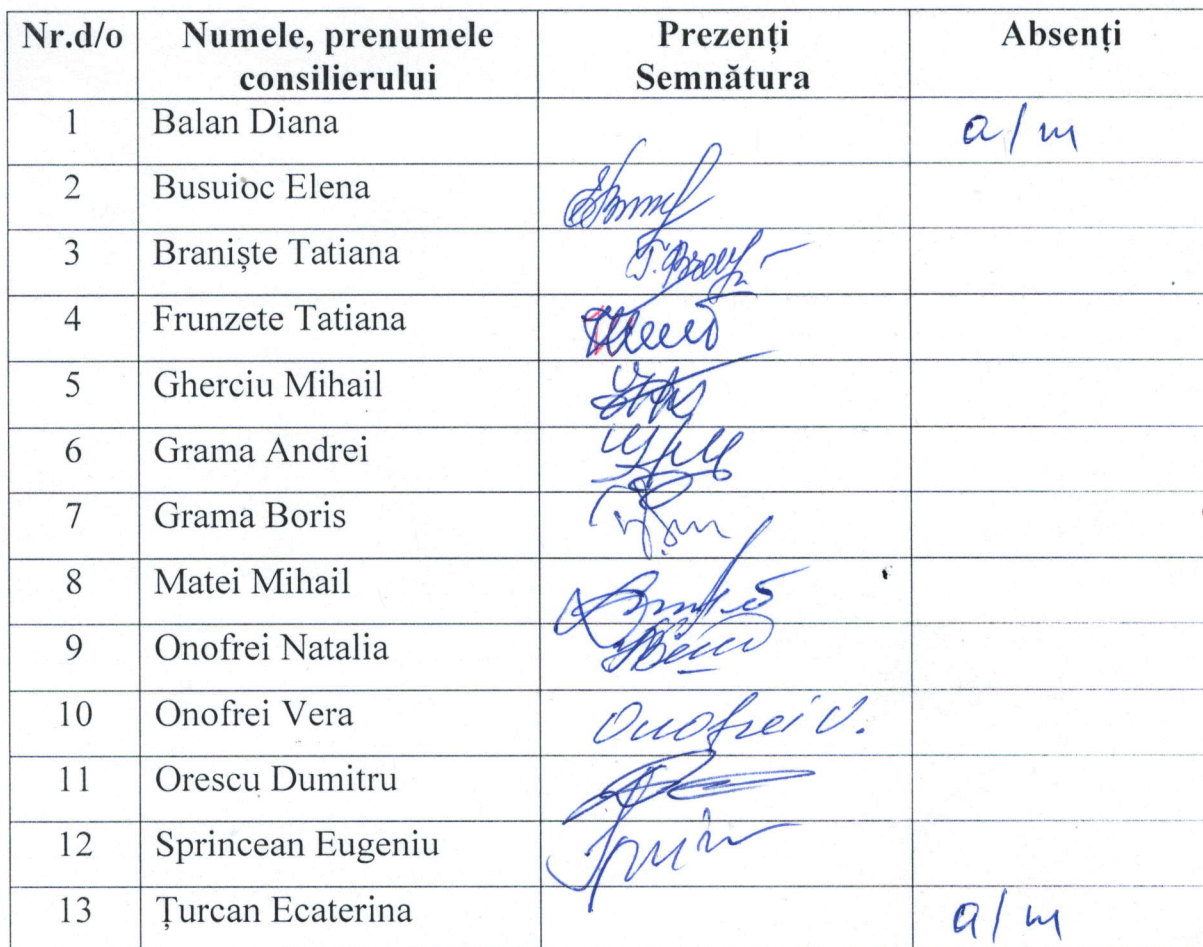 Nr.d/o Numele, prenumele consilierului Prezenți Semnătura Absenți
1 Balan Diana a/m
2 Busuioc Elena
3 Braniște Tatiana
4 Frunzete Tatiana
5 Gherciu Mihail
6 Grama Andrei
7 Grama Boris
8 Matei Mihail
9 Onofrei Natalia
10 Onofrei Vera Onofrei V.
11 Orescu Dumitru
12 Sprincean Eugeniu
13 Țurcan Ecaterina a/m